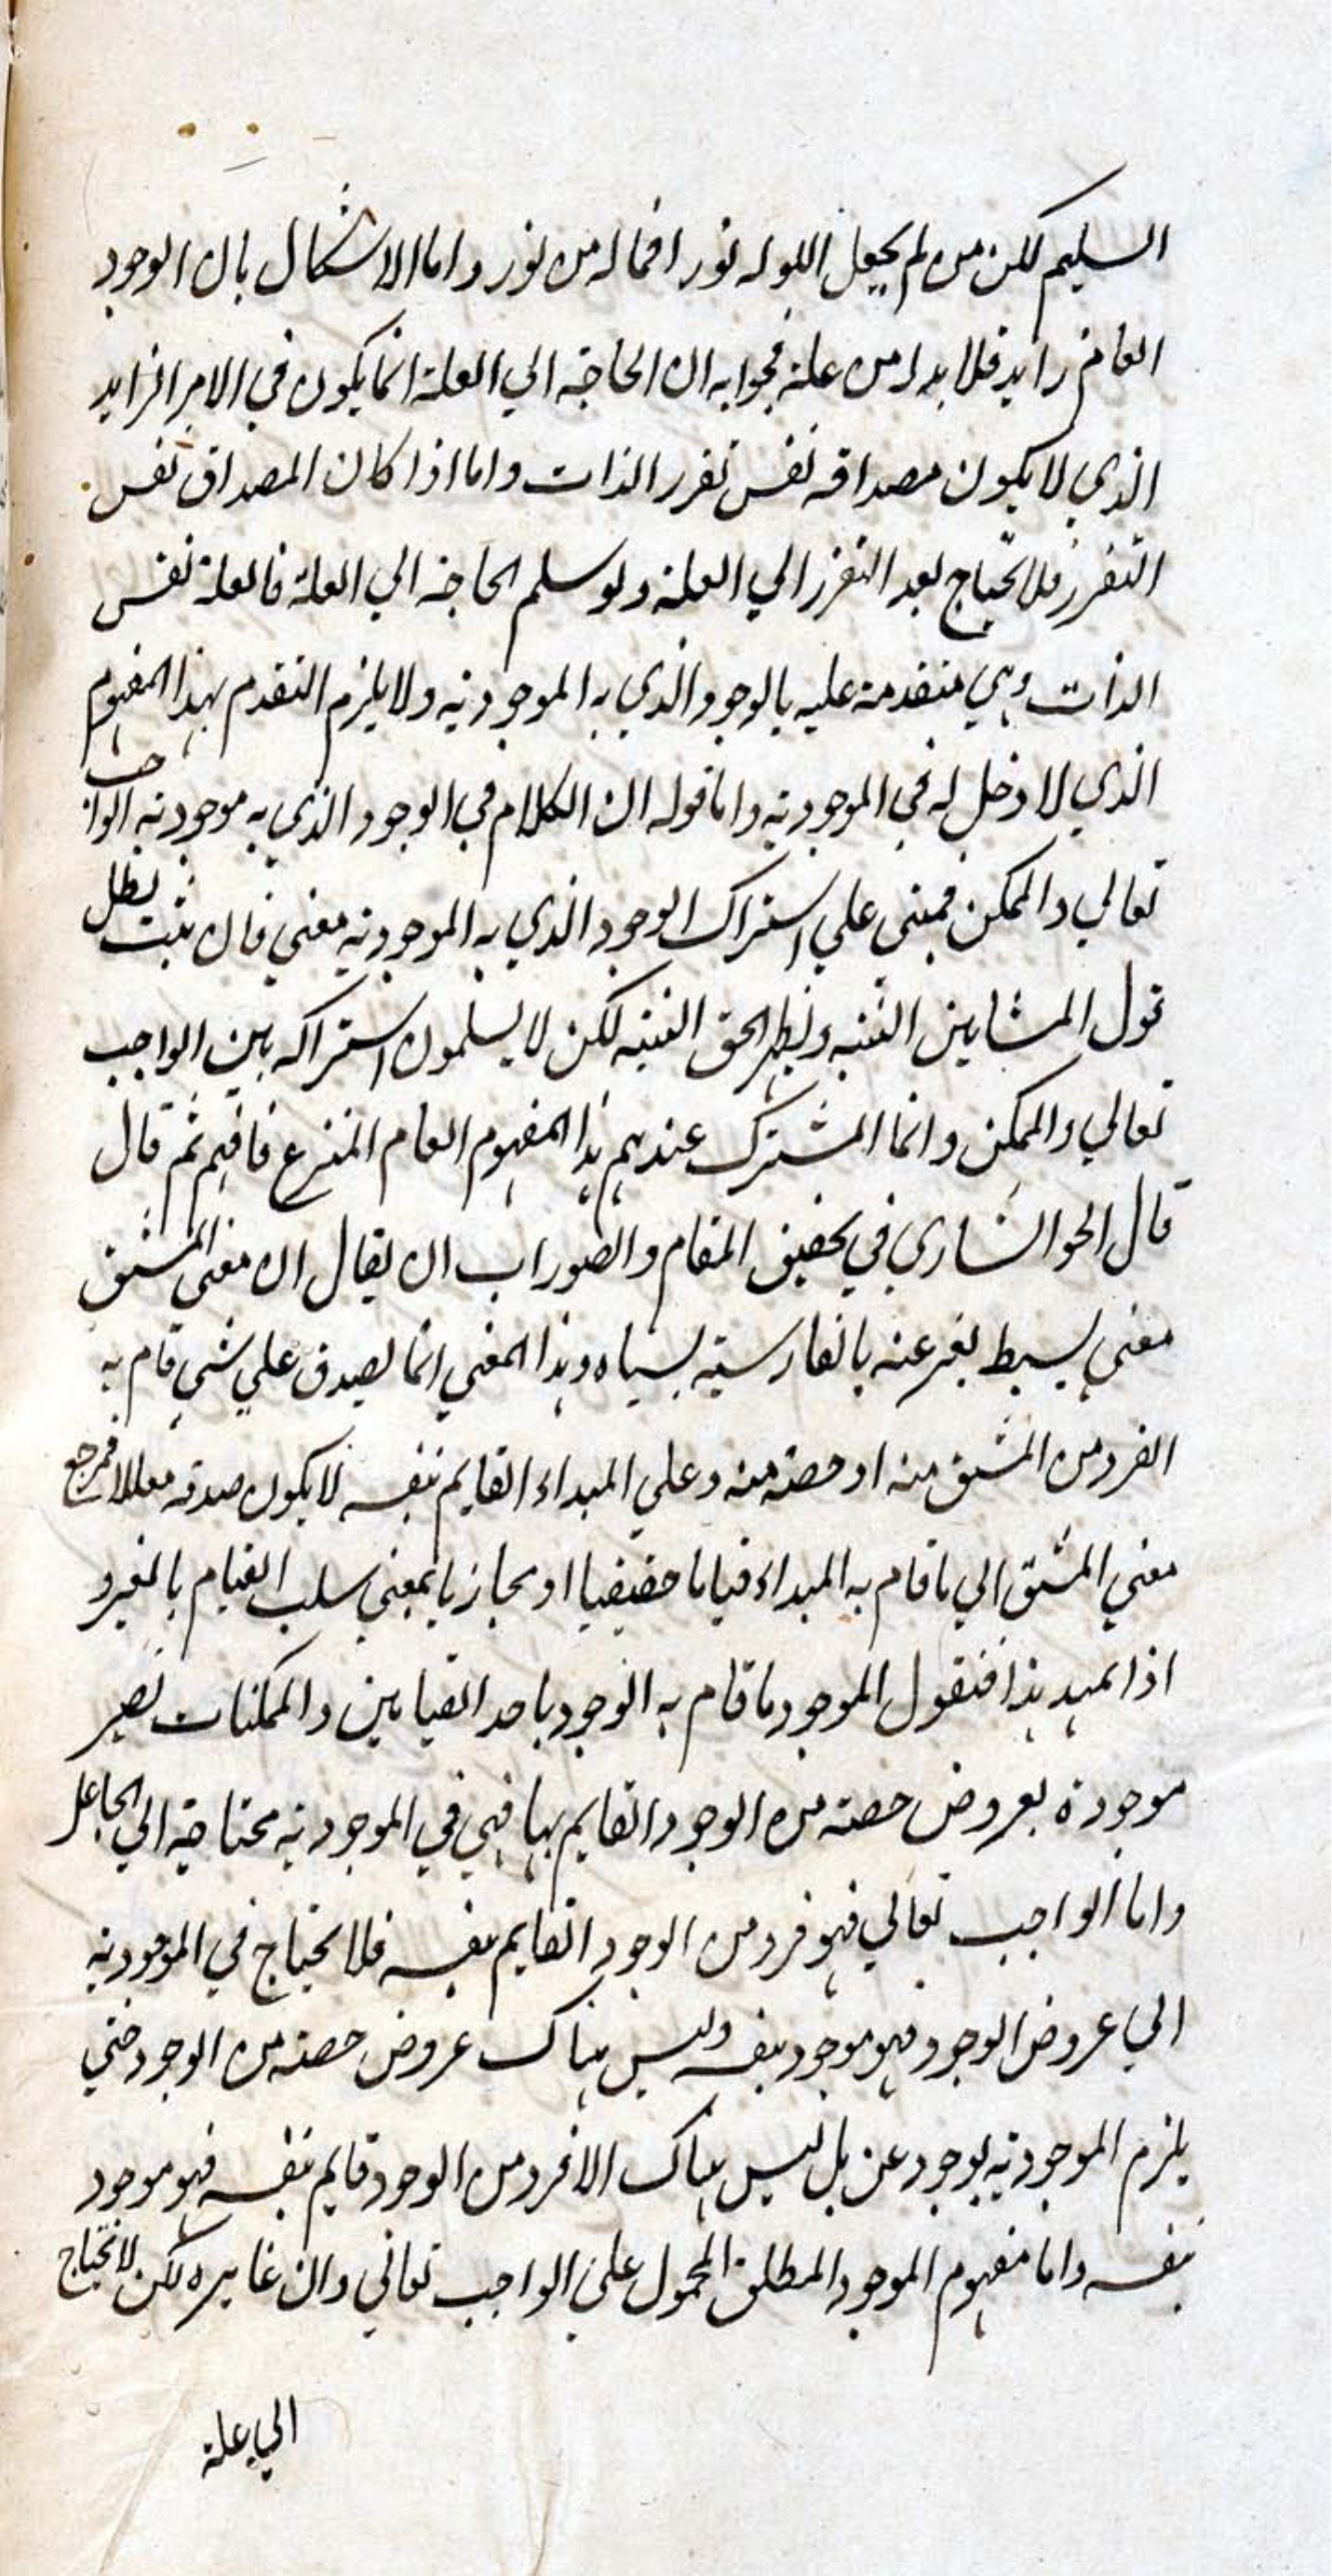 السليم لكن من لم يجعل الله له نورا فما له من نور واما الاشكال بان الوجود
العام زايد فلا بد له من علة فجوابه ان الحاجة الي العلة انما يكون في الامر الزايد
الذي لا يكون مصداقه نفس تقرر الذات واما اذا كان المصداق نفس
التقرر فلا يحتاج بعد التقرر الي العلة ولو سلم الحاجة الي العلة فالعلة نفس
الذات وهي متقدمة عليه بالوجود الذي به الموجودية ولا يلزم التقدم بهذا المفهوم
الذي لا دخل له في الموجودية واما قوله ان الكلام في الوجود الذي به موجودية الواجب
تعالي والممكن فمبني علي اشتراك الوجود الذي به الموجودية معني فان ثبت بطل
قول المشايين البتة ويظهر الحق البتة لكن لا يسلمون اشتراكه بين الواجب
تعالي والممكن وانما المشترك عندهم هذا المفهوم العام المنتزع فافهم ثم قال
قال الخوانساري في تحقيق المقام والصواب ان يقال ان معني المشتق
معني بسيط يعبر عنه بالفارسية بسياه وهذا المعني انما يصدق علي شي قام به
الفرد من المشتق منه او حصة منه وعلي المبداء القايم بنفسه لا يكون صدقه معللا فمرجع
معني المشتق الي ما قام به المبداء قياما حقيقيا او مجازيا بمعني سلب القيام بالغير و
اذا تمهد هذا فنقول الموجود ما قام به الوجود باحد القيامين والممكنات تصير
موجودة بعروض حصة من الوجود القايم بها فهي في الموجودية محتاجة الي الجاعل
واما الواجب تعالي فهو فرد من الوجود القايم بنفسه فلا يحتاج في الموجودية
الي عروض الوجود فهو موجود بنفسه وليس هناك عروض حصة من الوجود حتي
يلزم الموجودية بوجود عن بل ليس هناك الا فرد من الوجود قايم بنفسه فهو موجود
بنفسه واما مفهوم الموجود المطلق المحمول علي الواجب تعالي وان غايره لكن لا يحتاج
الي علة